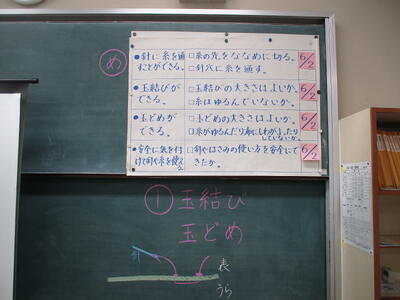 め
●針に糸を通
すことができる。
□糸の先をななめに切る。
□針穴に糸を通す。
6/2
●玉結びが
できる。
□玉結びの大きさはよいか。
□糸はゆるんでいないか。
6/2
●玉どめが
できる。
□玉どめの大きさはよいか。
□糸がゆるんだり布にしわがよったり
していないか。
6/2
●安全に気を付
けて針や糸を使える。
□針やはさみの使い方を安全にで
きたか。
6/2
①玉結び
玉どめ
針
表
うら